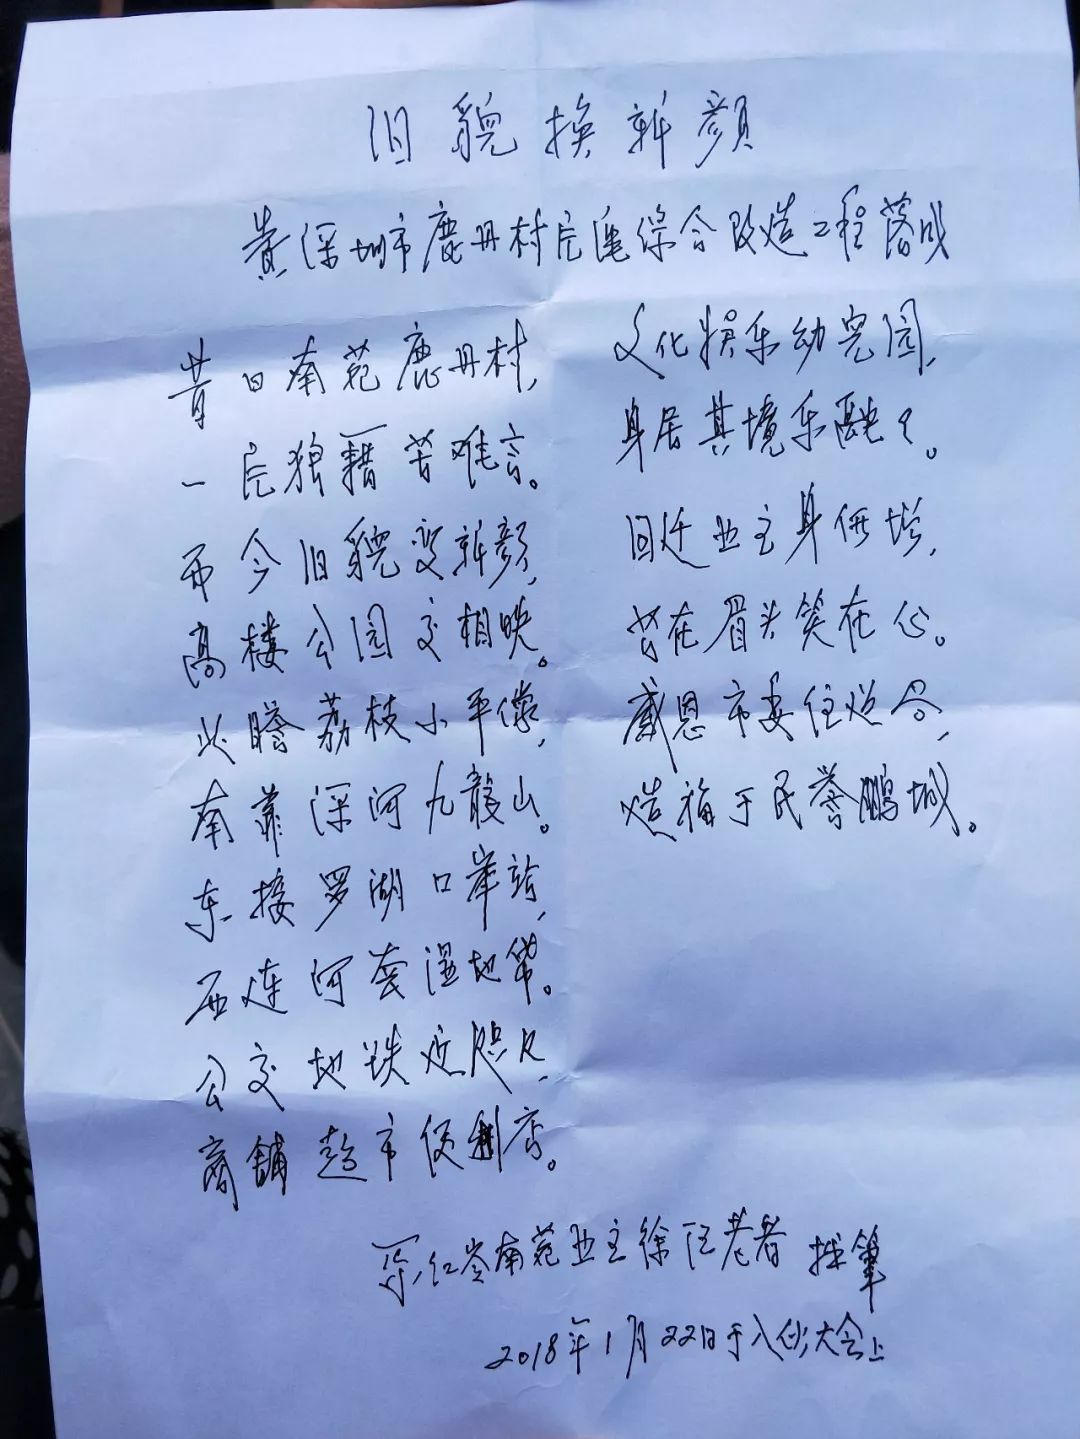 旧貌换新颜
贵深圳市鹿丹村片区综合改造工程落成
昔日南苑鹿丹村，
一片狼藉苦难言。
而今旧貌变新颜，
高楼公园交相映。
北瞻荔枝小平像，
南靠深河九龙山。
东接罗湖口岸站，
西连河套湿地带。
公交地铁近咫尺，
商铺超市便利店。
文化娱乐幼儿园，
身居其境乐融々。
回迁业主身价增，
皆在眉头笑在心。
感恩市委住建合，
造福于民誉鹏城。
红岭南苑业主徐老者 拙笔
2018年1月22日于入伙大会上